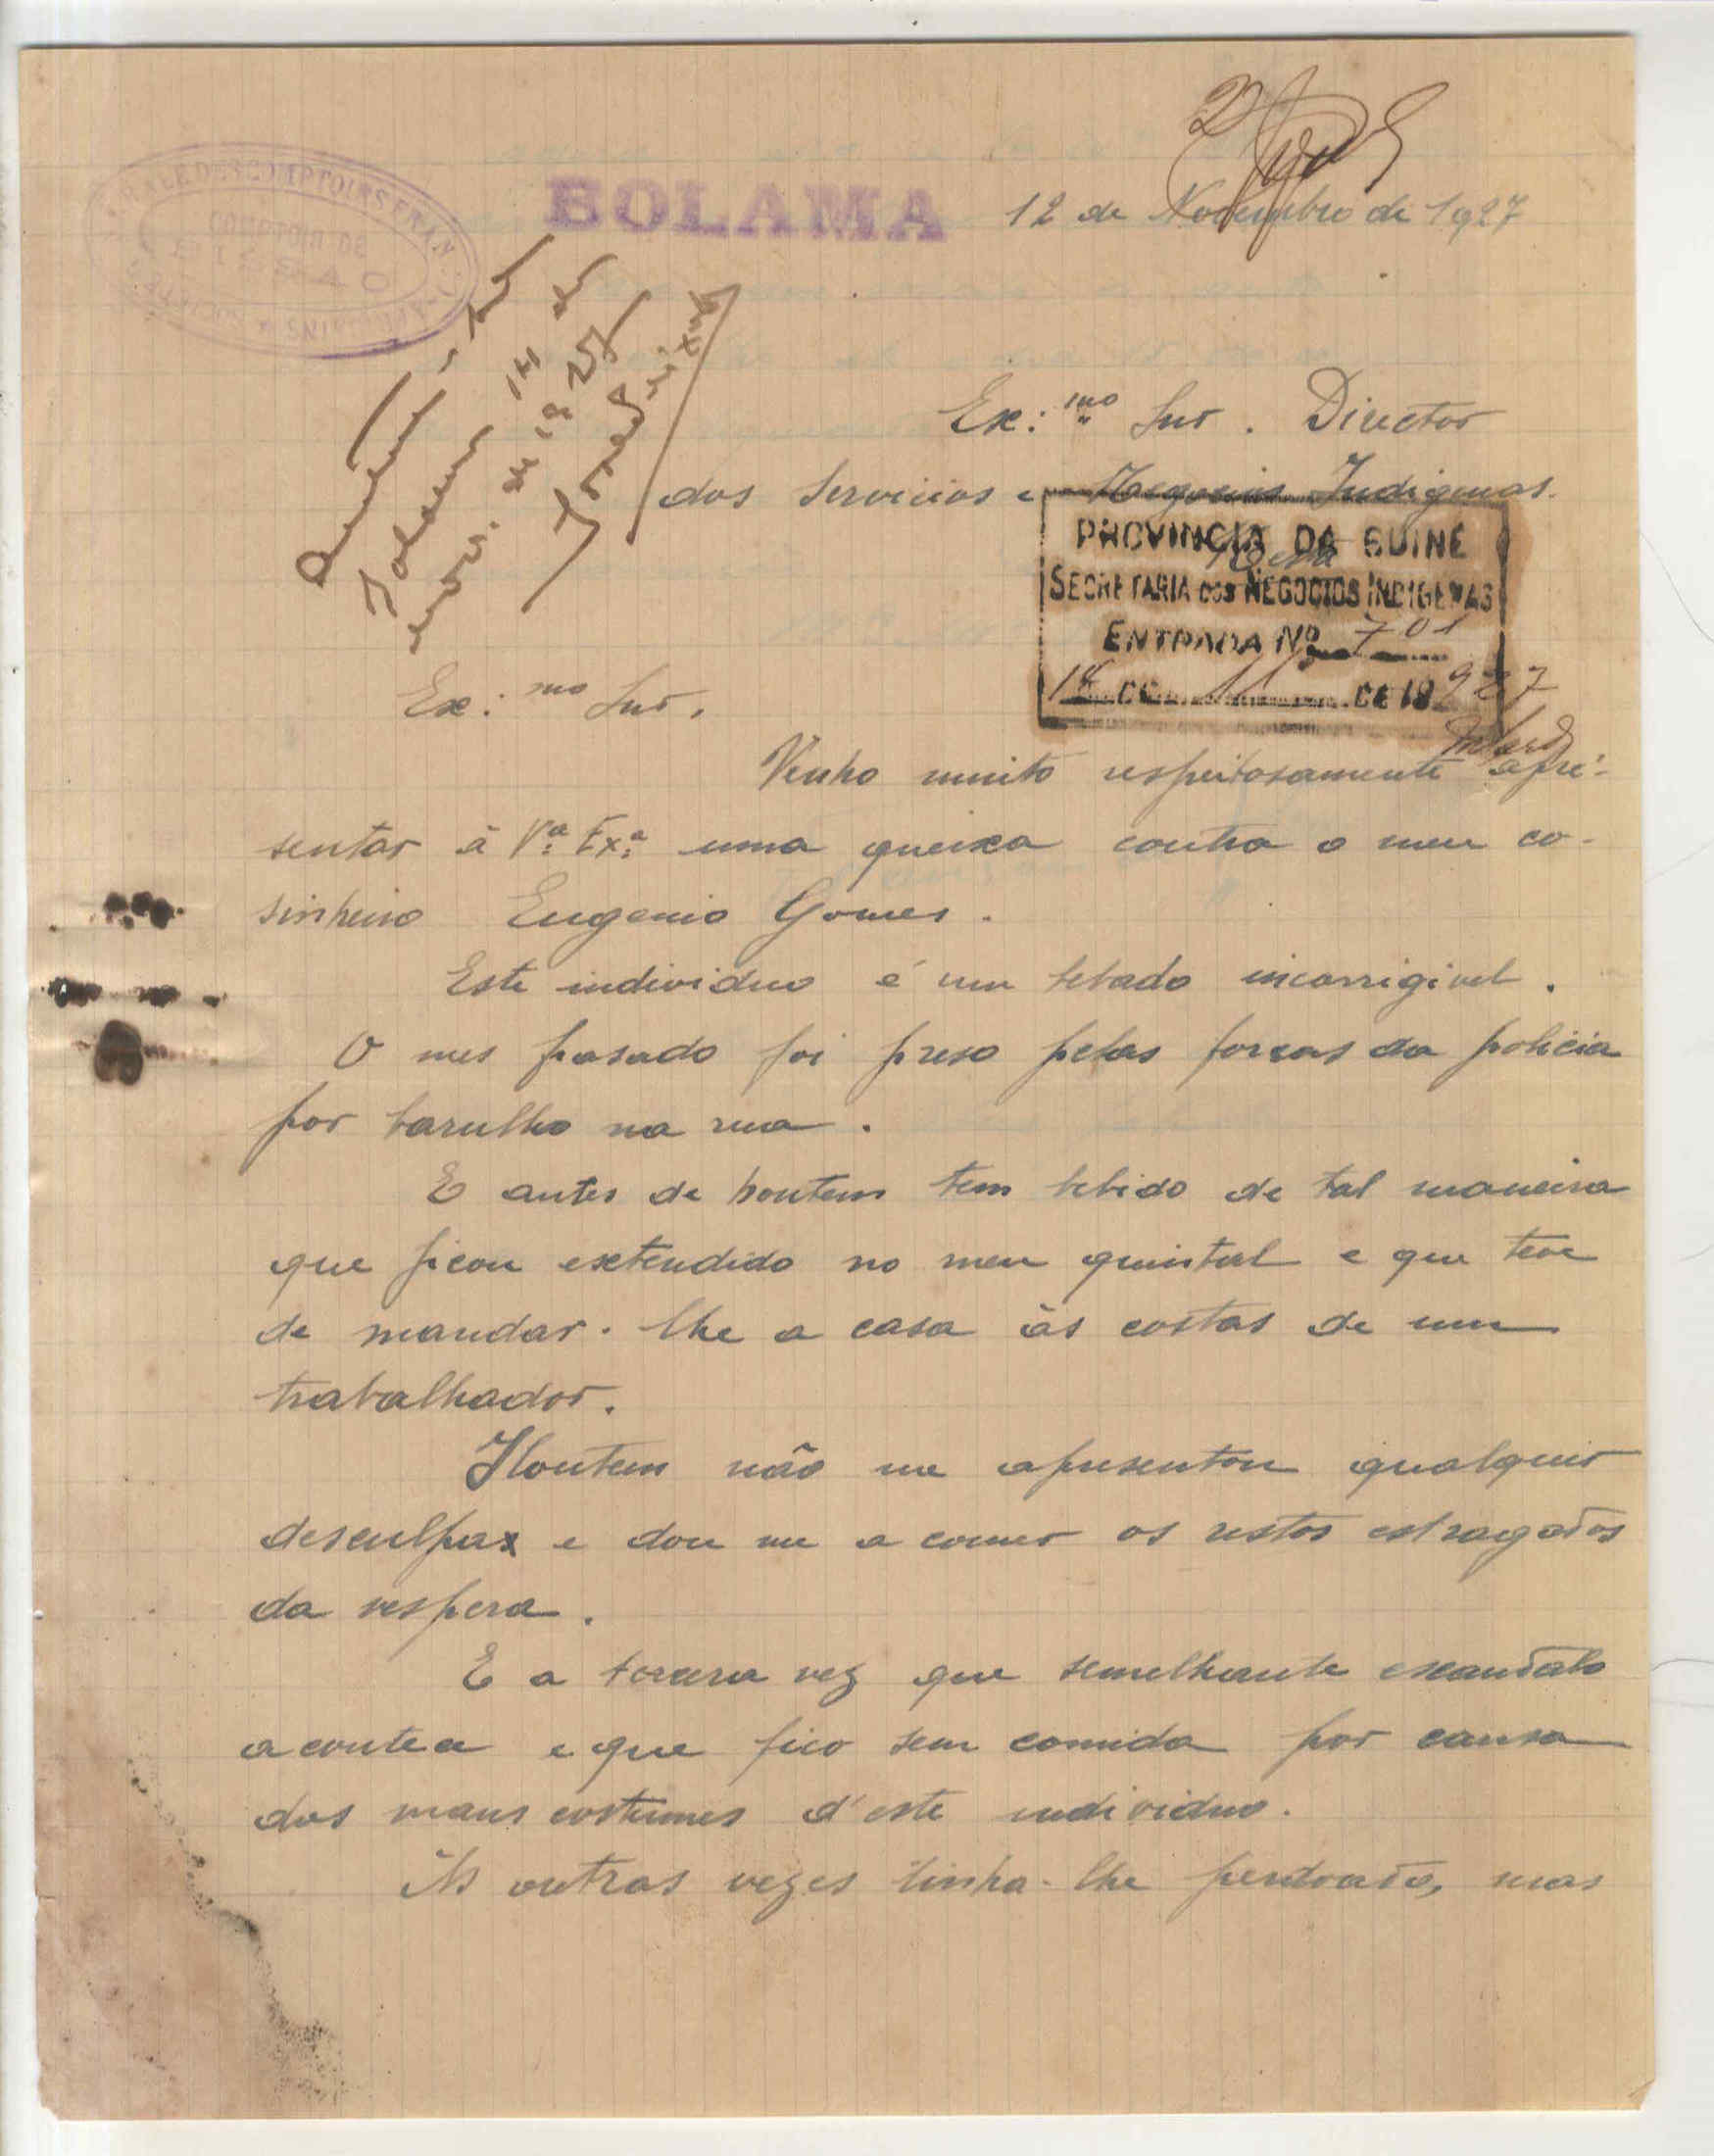 BOLAMA 12 de Novembro de 1927
COMPTOIR DE
BISSAO
Ex:mo Snr. Director
dos Servicios e Negocios Indigenas.
PROVINCIA DA GUINÉ
SECRETARIA DOS NEGOCIOS INDIGENAS
ENTRADA Nº 701
DE 11 DE 1927
Ex:mo Snr.
Venho muito respeitosamente apre-
sentar à Vª Exª uma queixa contra o meu co-
sinheiro Eugenio Gomes.
Este individuo é um bebado incorrigivel.
O mes pasado foi preso pelas forsas da policia
por barulho na rua.
E antes de hontem tem bebido de tal maneira
que ficou extendido no meu quintal e que teve
de mandar-lhe a casa às costas de um
trabalhador.
Hontem não me apresentou qualquer
desculpa e dou me a comer os restos estragados
da vespera.
E a tercera vez que semelhante escandalo
acontece e que fico sem comida por causa
dos maus costumes d'este individuo.
As outras vezes tinha-lhe perdoado, mas